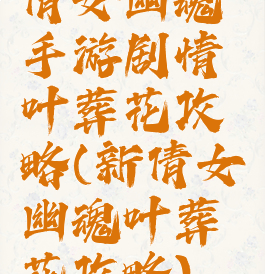 倩女幽魂
手游剧情
叶葬花攻
略(新倩女
幽魂叶葬
花攻略)